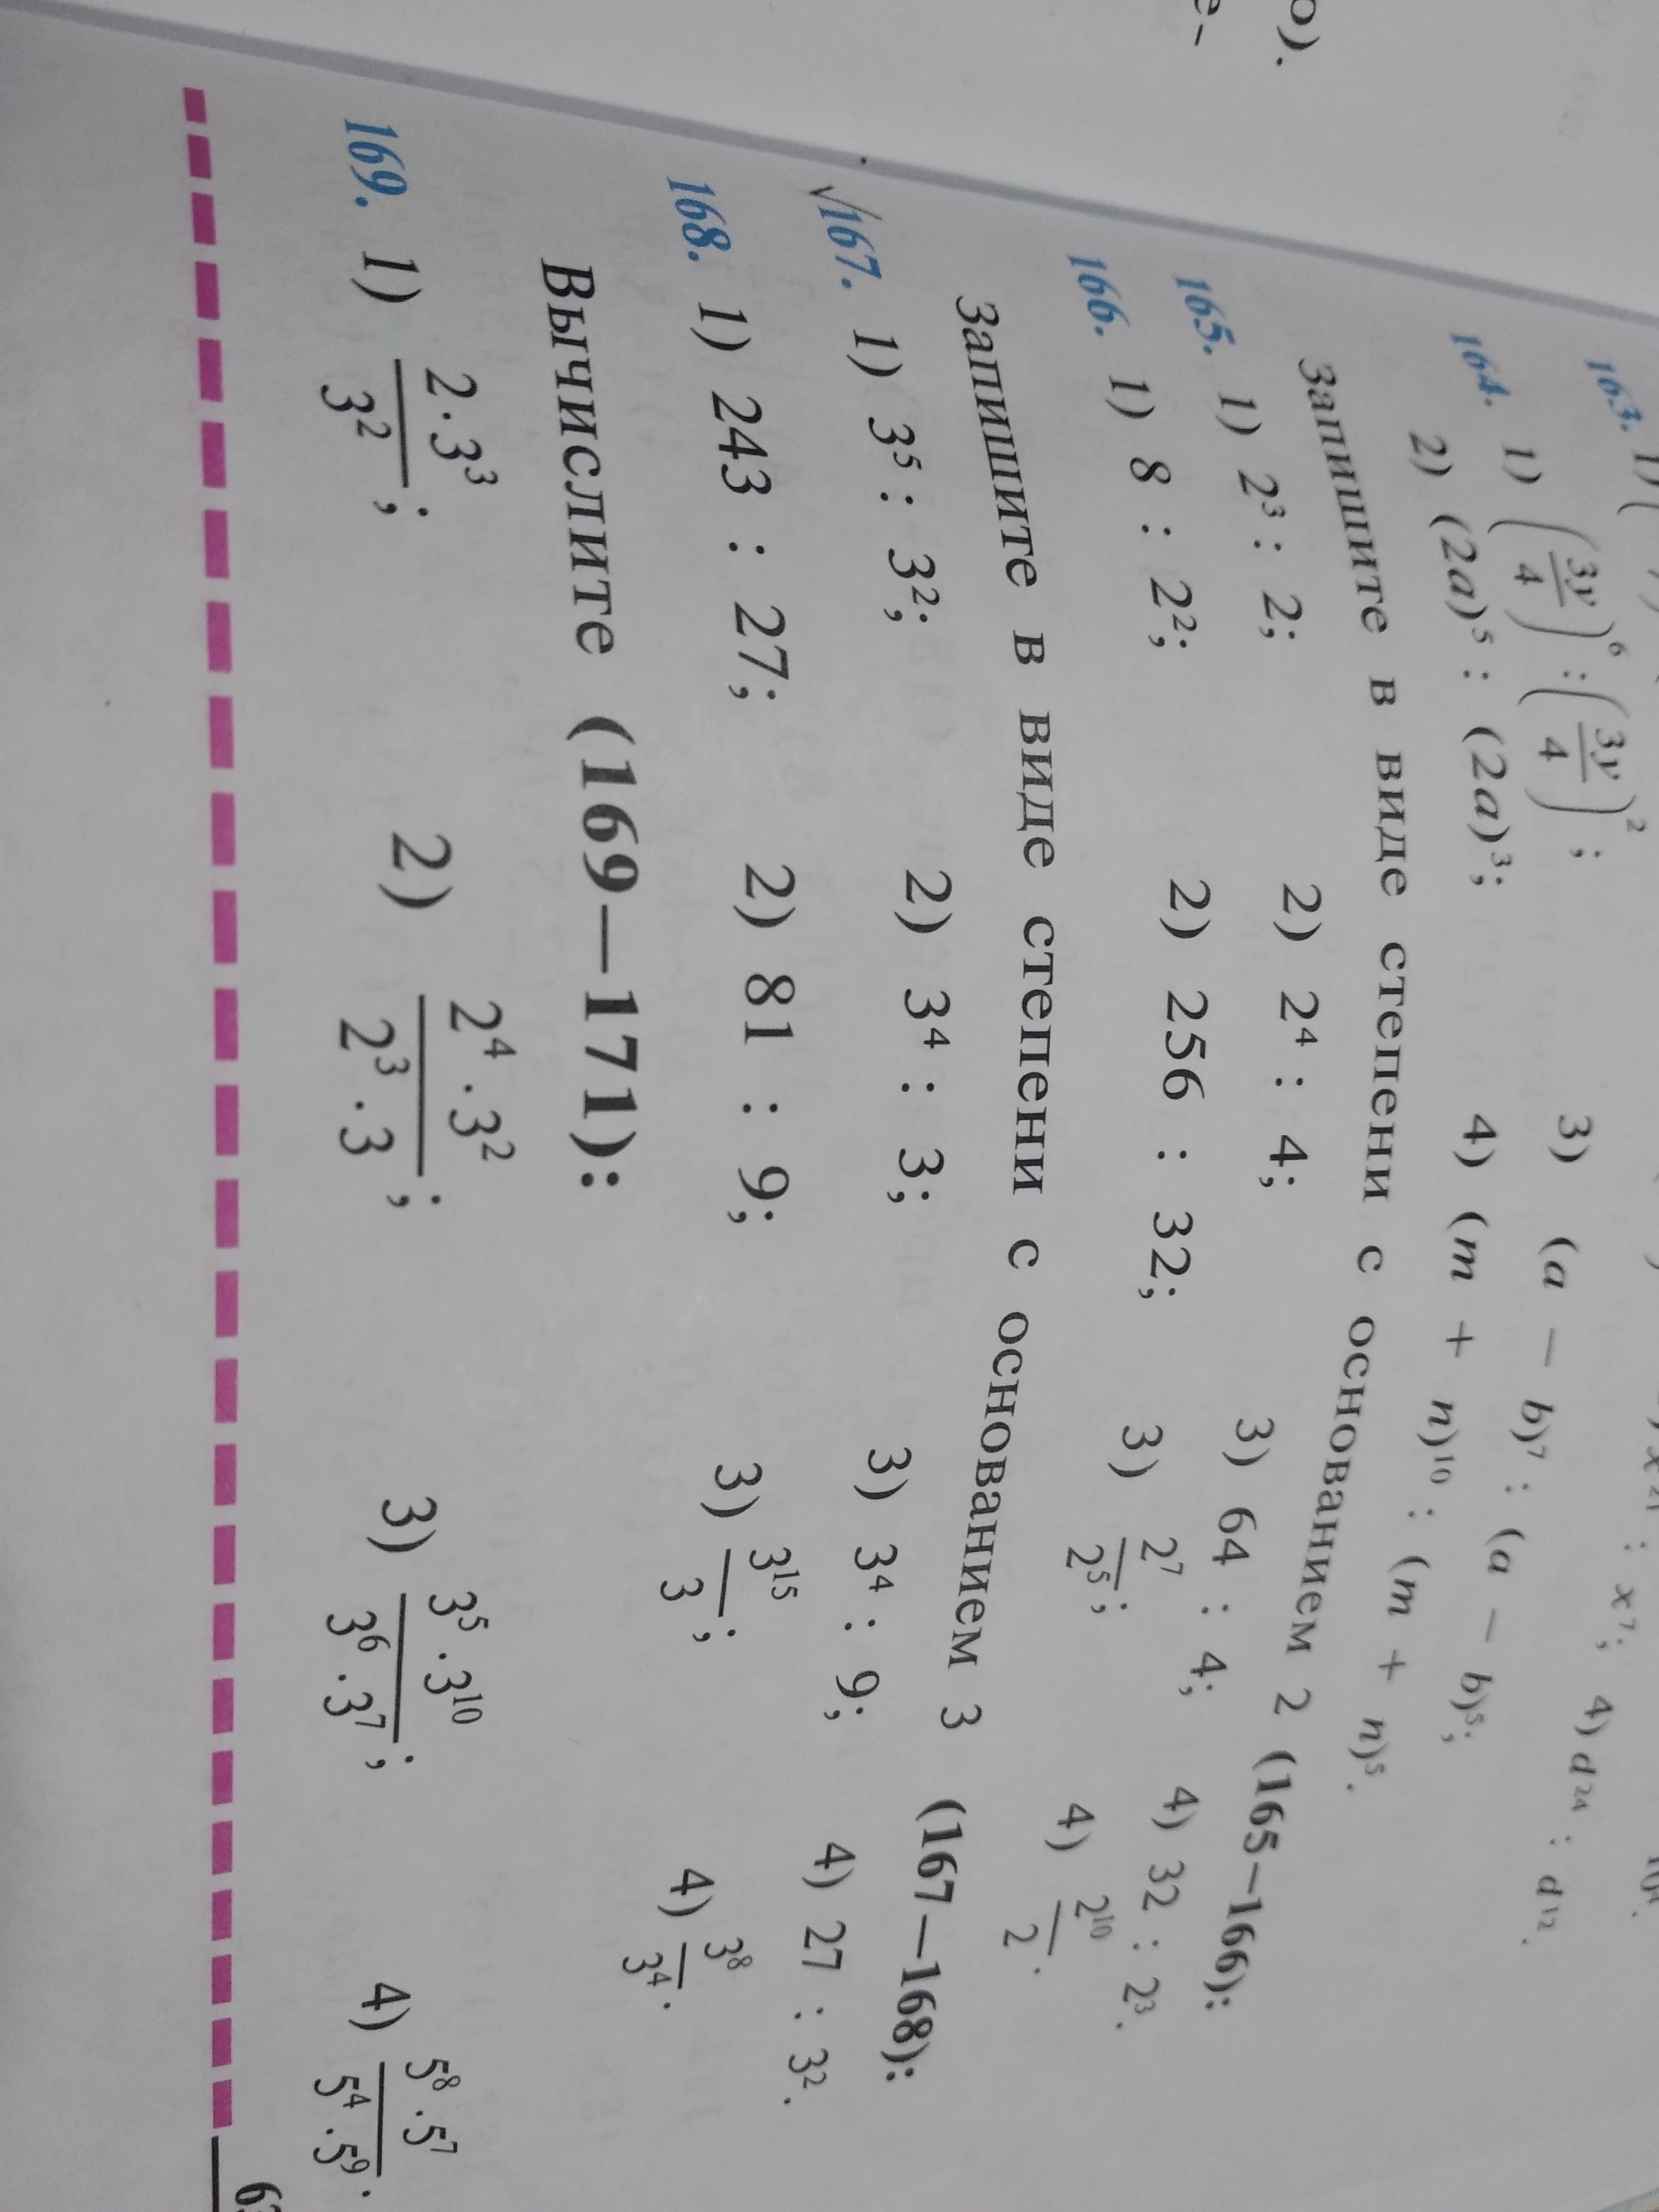 163. 1)
x²¹ : x⁷; 4) d²⁴ : d¹².
164. 1) (3y/4)⁶ : (3y/4)²; 3) (a − b)⁷ : (a − b)⁵;
2) (2a)⁵ : (2a)³; 4) (m + n)¹⁰ : (m + n)⁵.
Запишите в виде степени с основанием 2 (165—166):
165. 1) 2³ : 2; 2) 2⁴ : 4; 3) 64 : 4; 4) 32 : 2³.
166. 1) 8 : 2²; 2) 256 : 32; 3) 2⁷/2⁵; 4) 2¹⁰/2.
Запишите в виде степени с основанием 3 (167—168):
√167. 1) 3⁵ : 3²; 2) 3⁴ : 3; 3) 3⁴ : 9; 4) 27 : 3².
168. 1) 243 : 27; 2) 81 : 9; 3) 3¹⁵/3; 4) 3⁸/3⁴.
Вычислите (169—171):
169. 1) 2·3³/3²; 2) 2⁴·3²/2³·3; 3) 3⁵·3¹⁰/3⁶·3⁷; 4) 5⁸·5⁷/5⁴·5⁹.